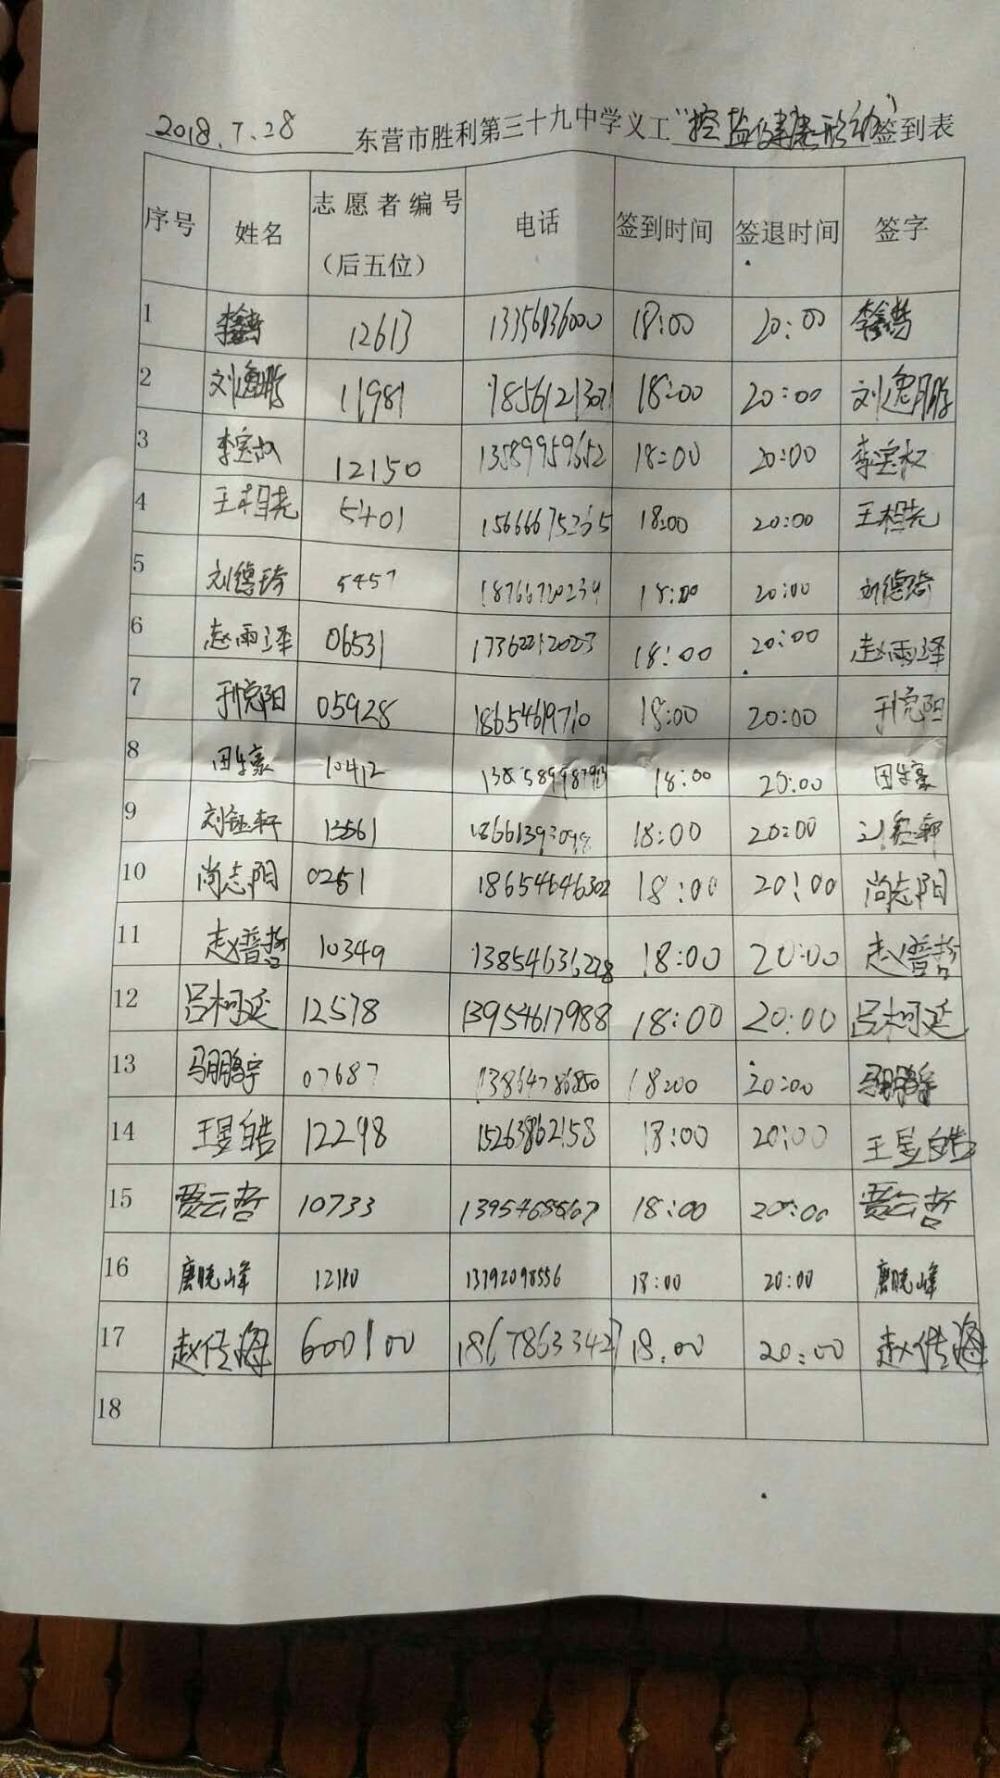 2018.7.28 东营市胜利第三十九中学义工“控盐健康行动”签到表
序号 姓名 志愿者编号（后五位） 电话 签到时间 签退时间 签字
1 12613 18:00 20:00
2 刘逸鹏 11981 18561213071 18:00 20:00 刘逸鹏
3 李宝权 12150 13589959652 18:00 20:00 李宝权
4 王相尧 5401 18:00 20:00 王相尧
5 刘德琦 5457 18766720239 18:00 20:00 刘德琦
6 赵雨泽 06531 18:00 20:00 赵雨泽
7 于克阳 05928 18654619710 18:00 20:00 于克阳
8 10412 18:00 20:00
9 刘钰轩 13561 18:00 20:00
10 尚志阳 0251 18654646302 18:00 20:00 尚志阳
11 赵普哲 10349 13854636228 18:00 20:00 赵普哲
12 吕柯延 12578 13954617988 18:00 20:00 吕柯延
13 马鹏宇 07687 13864786850 18:00 20:00 马鹏宇
14 王昱皓 12298 15263862158 18:00 20:00 王昱皓
15 贾云哲 10733 18:00 20:00 贾云哲
16 唐晓峰 12180 13792098556 18:00 20:00 唐晓峰
17 赵传海 600100 18678633427 18:00 20:00 赵传海
18